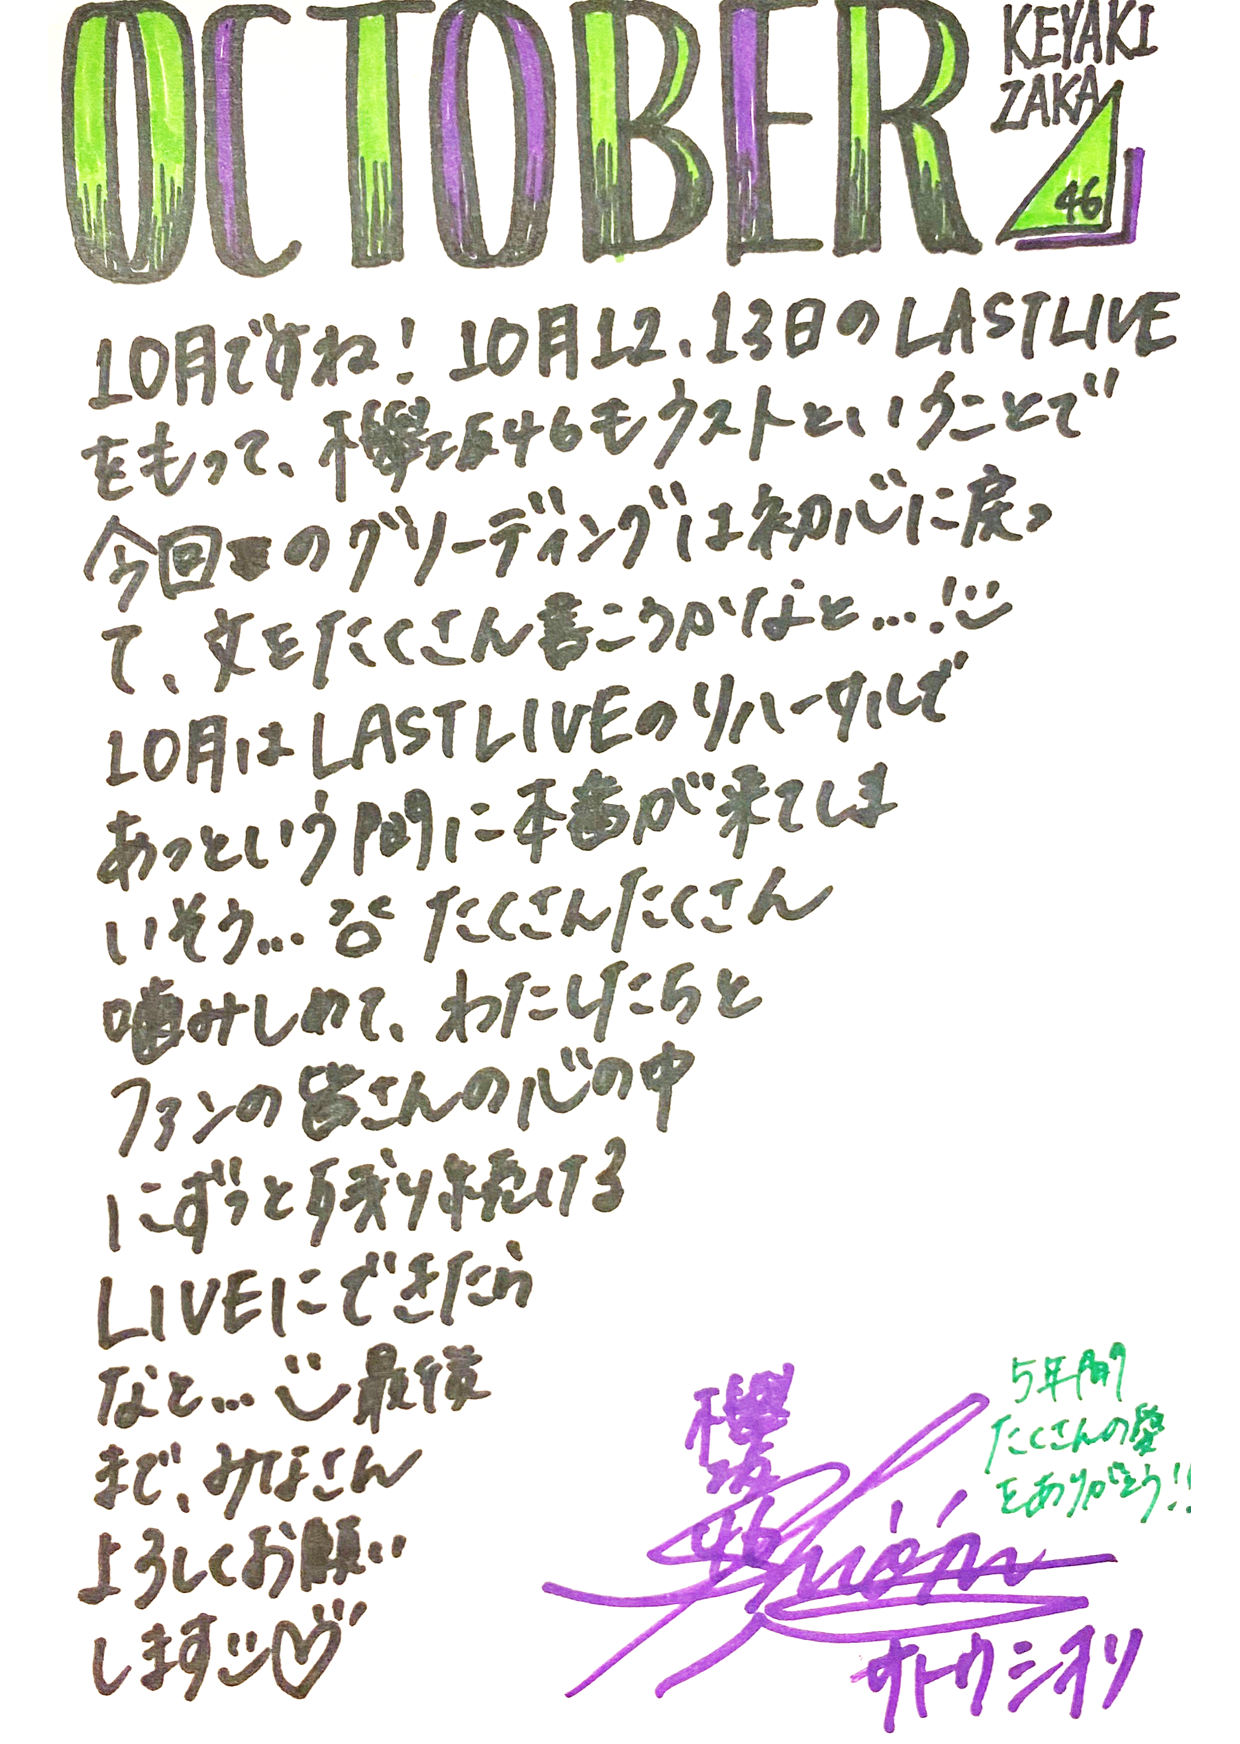 OCTOBER
KEYAKI
ZAKA
46
10月ですね! 10月12、13日のLAST LIVE
をもって、欅坂46もラストということで
今回のグリーディングは初心に戻っ
て、文をたくさん書こうかなと...!
10月はLAST LIVEのリハーサルで
あっという間に本番が来てしま
いそう... たくさんたくさん
噛みしめて、わたしたちと
ファンの皆さんの心の中
にずっと残り続ける
LIVEにできたら
なと... 最後
まで、みなさん
よろしくお願い
します♡
5年間
たくさんの愛
をありがとう!!
欅
坂
46
Shiori
サトウシオリ